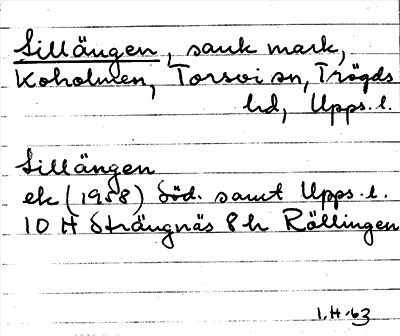 Sillängen, sank mark,
Koholmen, Torsvi sn, Trögds
hd, Upps. l.
Sillängen
ek (1958) Söd. samt Upps. l.
10 H Strängnäs 8 h Rällingen
1.H.63